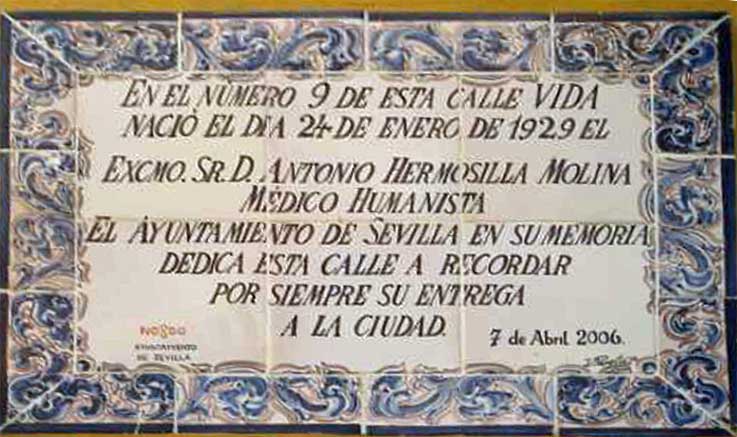 EN EL NÚMERO 9 DE ESTA CALLE VIDA
NACIÓ EL DIA 24 DE ENERO DE 1929 EL
EXCMO. SR. D. ANTONIO HERMOSILLA MOLINA
MÉDICO HUMANISTA
EL AYUNTAMIENTO DE SEVILLA EN SU MEMORIA
DEDICA ESTA CALLE A RECORDAR
POR SIEMPRE SU ENTREGA
A LA CIUDAD.
7 de Abril 2006.
NO8DO
AYUNTAMIENTO
DE SEVILLA